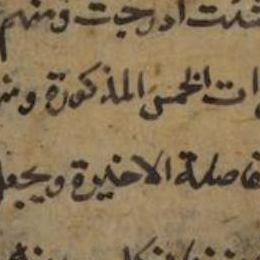 شئت ادرجت ومنهم
ات الخمس المذكورة ومن
فاصلة الاخيرة ويجعل